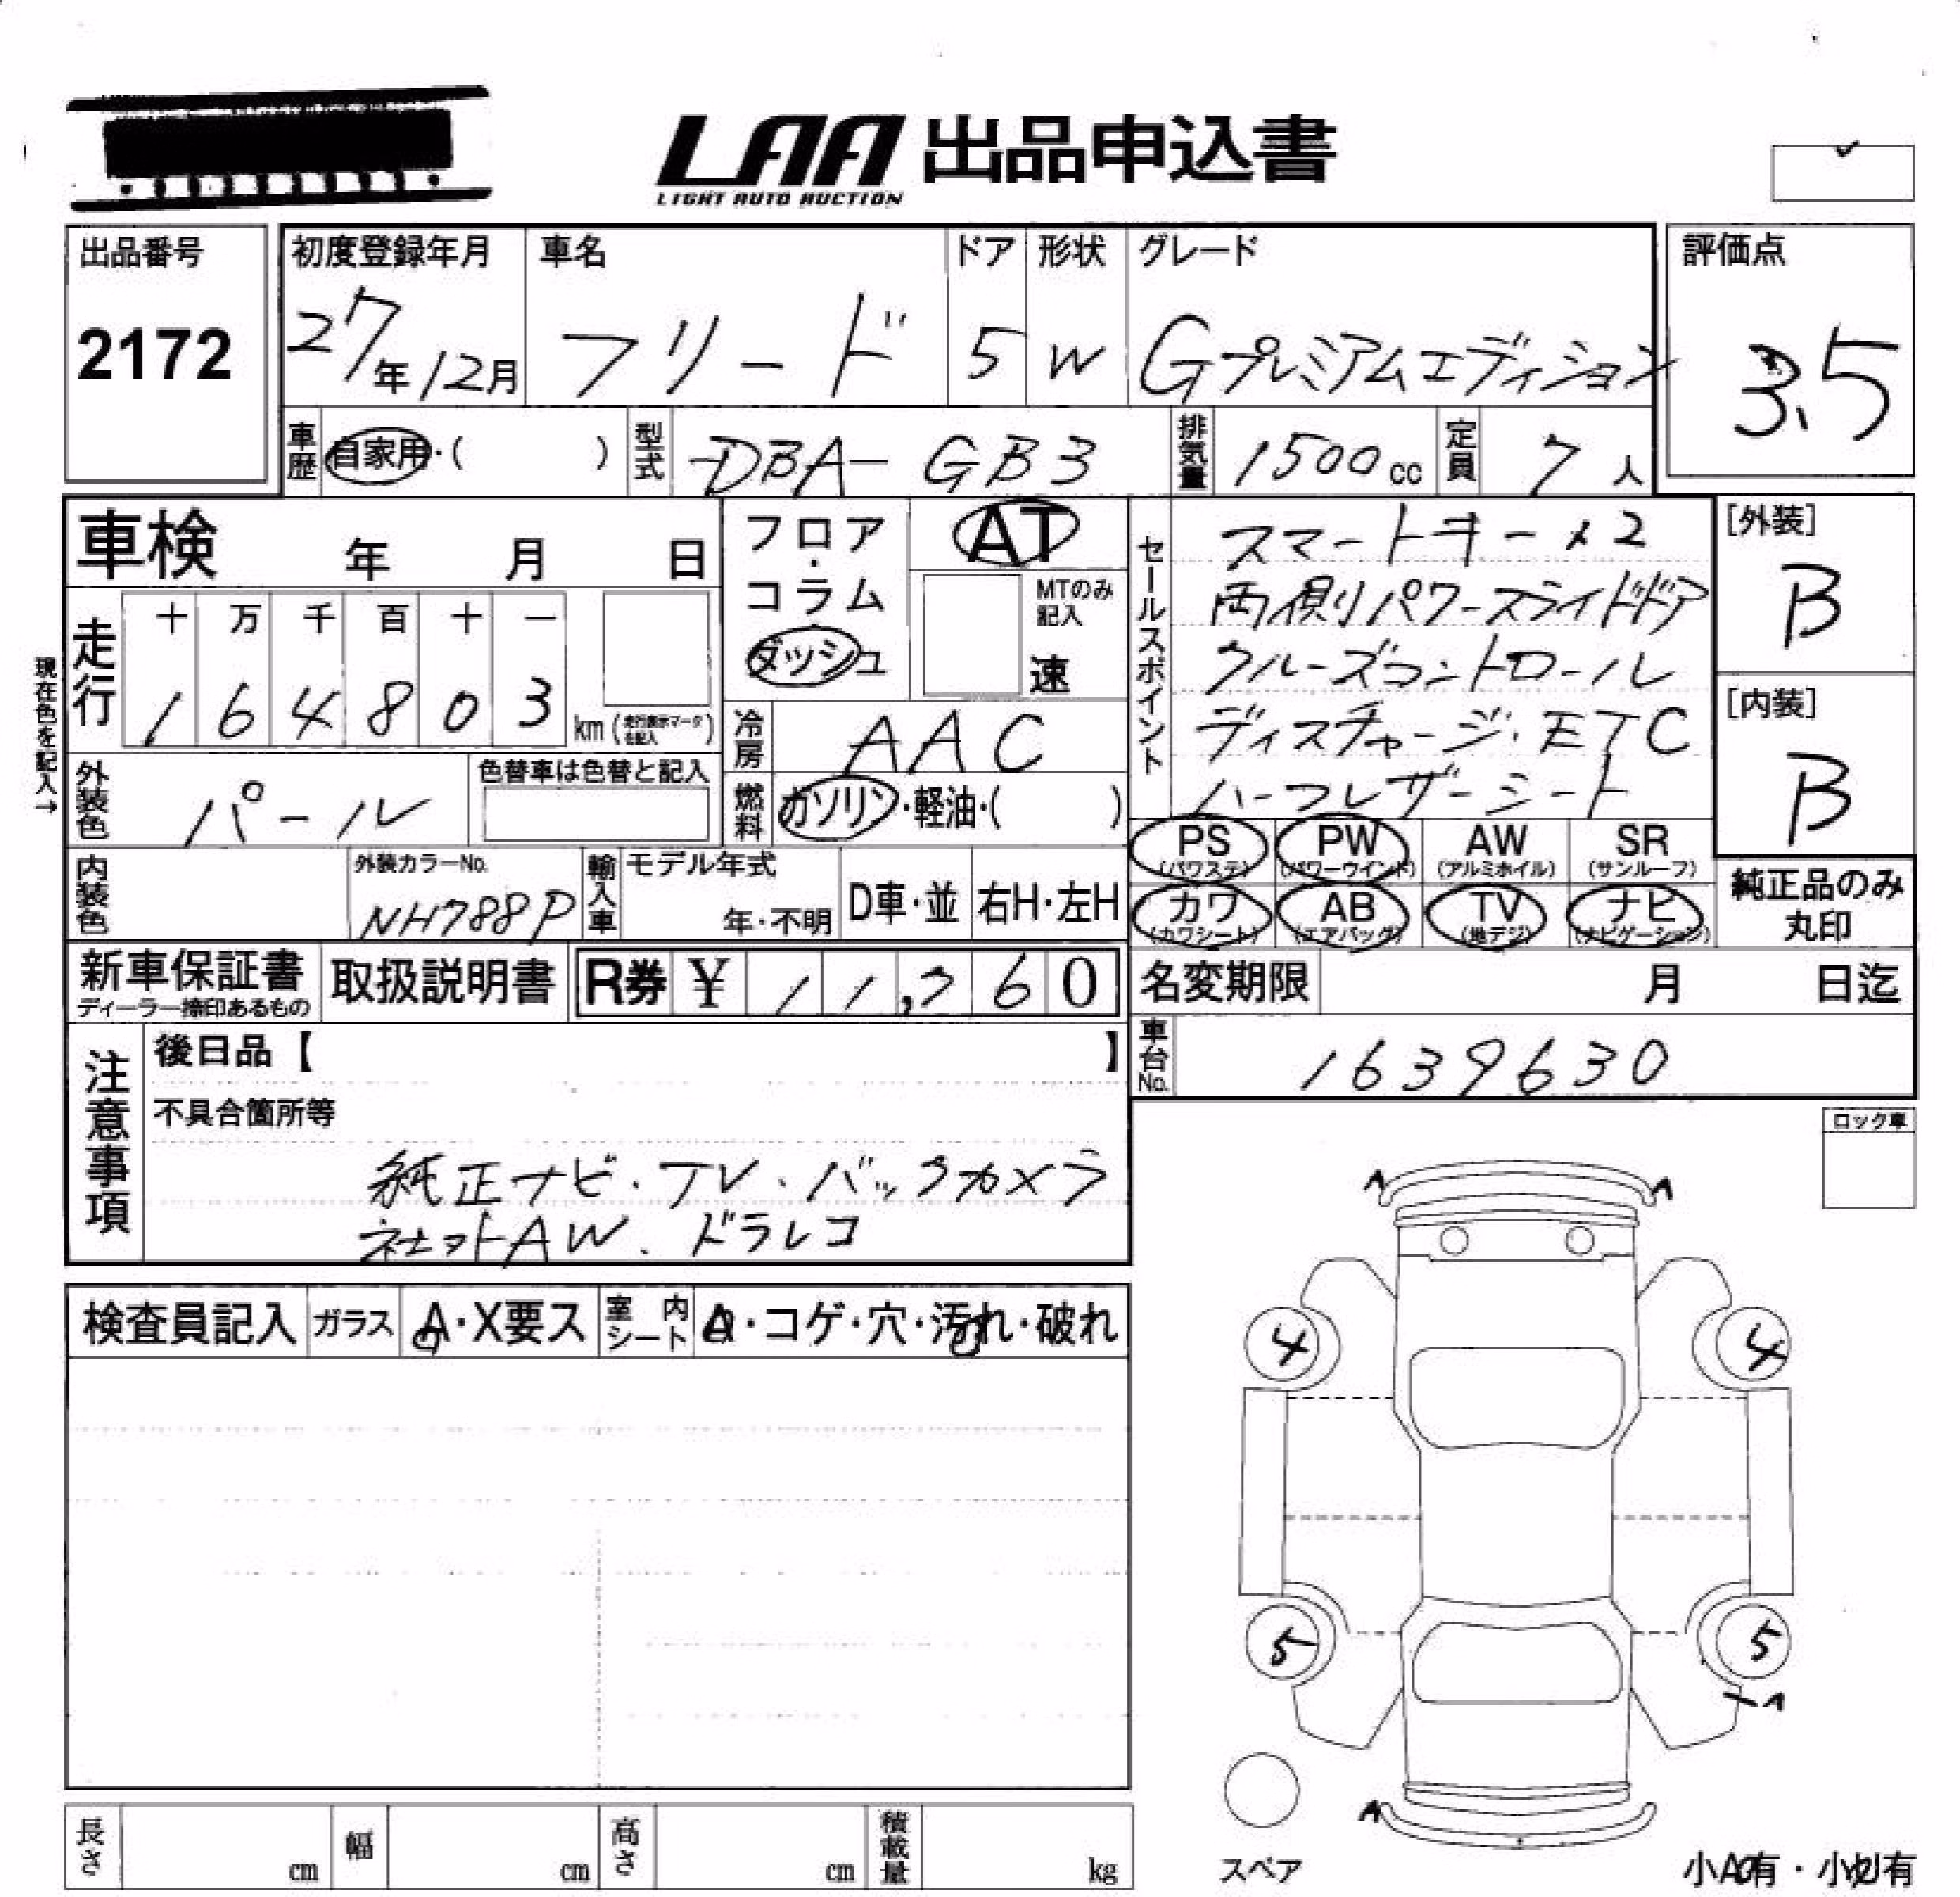 LAA 出品申込書
LIGHT AUTO AUCTION
出品番号
2172
初度登録年月
27年12月
車名
フリード
ドア
5
形状
W
グレード
Gプレミアムエディション
評価点
3.5
車歴
自家用・( )
型式
DBA-GB3
排気量
1500cc
定員
7人
車検 年 月 日
フロア・コラム
ダッシュ
AT
MTのみ記入
速
セールスポイント
スマートキーx2
両側パワースライドドア
クルーズコントロール
ディスチャージ・ETC
ハーフレザーシート
[外装]
B
[内装]
B
現在色を記入→
走行
十 万 千 百 十 一
1 6 4 8 0 3
km (走行表示マークを記入)
冷房
AAC
外装色
パール
色替車は色替と記入
燃料
ガソリン・軽油・( )
PS (パワステ) PW (パワーウインド) AW (アルミホイル) SR (サンルーフ)
カワ (カワシート) AB (エアバッグ) TV (地デジ) ナビ (ナビゲーション)
純正品のみ丸印
内装色
外装カラーNo.
NH788P
輸入車
モデル年式
年・不明
D車・並
右H・左H
新車保証書
ディーラー捺印あるもの
取扱説明書
R券 ¥ 11,260
名変期限 月 日迄
車台No.
1639630
注意事項
後日品【 】
不具合箇所等
純正ナビ・TV・バックカメラ
社外AW、ドラレコ
ロック車
検査員記入 ガラス A・X要ス 室内シート A・コゲ・穴・汚れ・破れ
A A
4 4
5 5
A
A
スペア
小A有・小凹有
長さ cm 幅 cm 高さ cm 積載量 kg